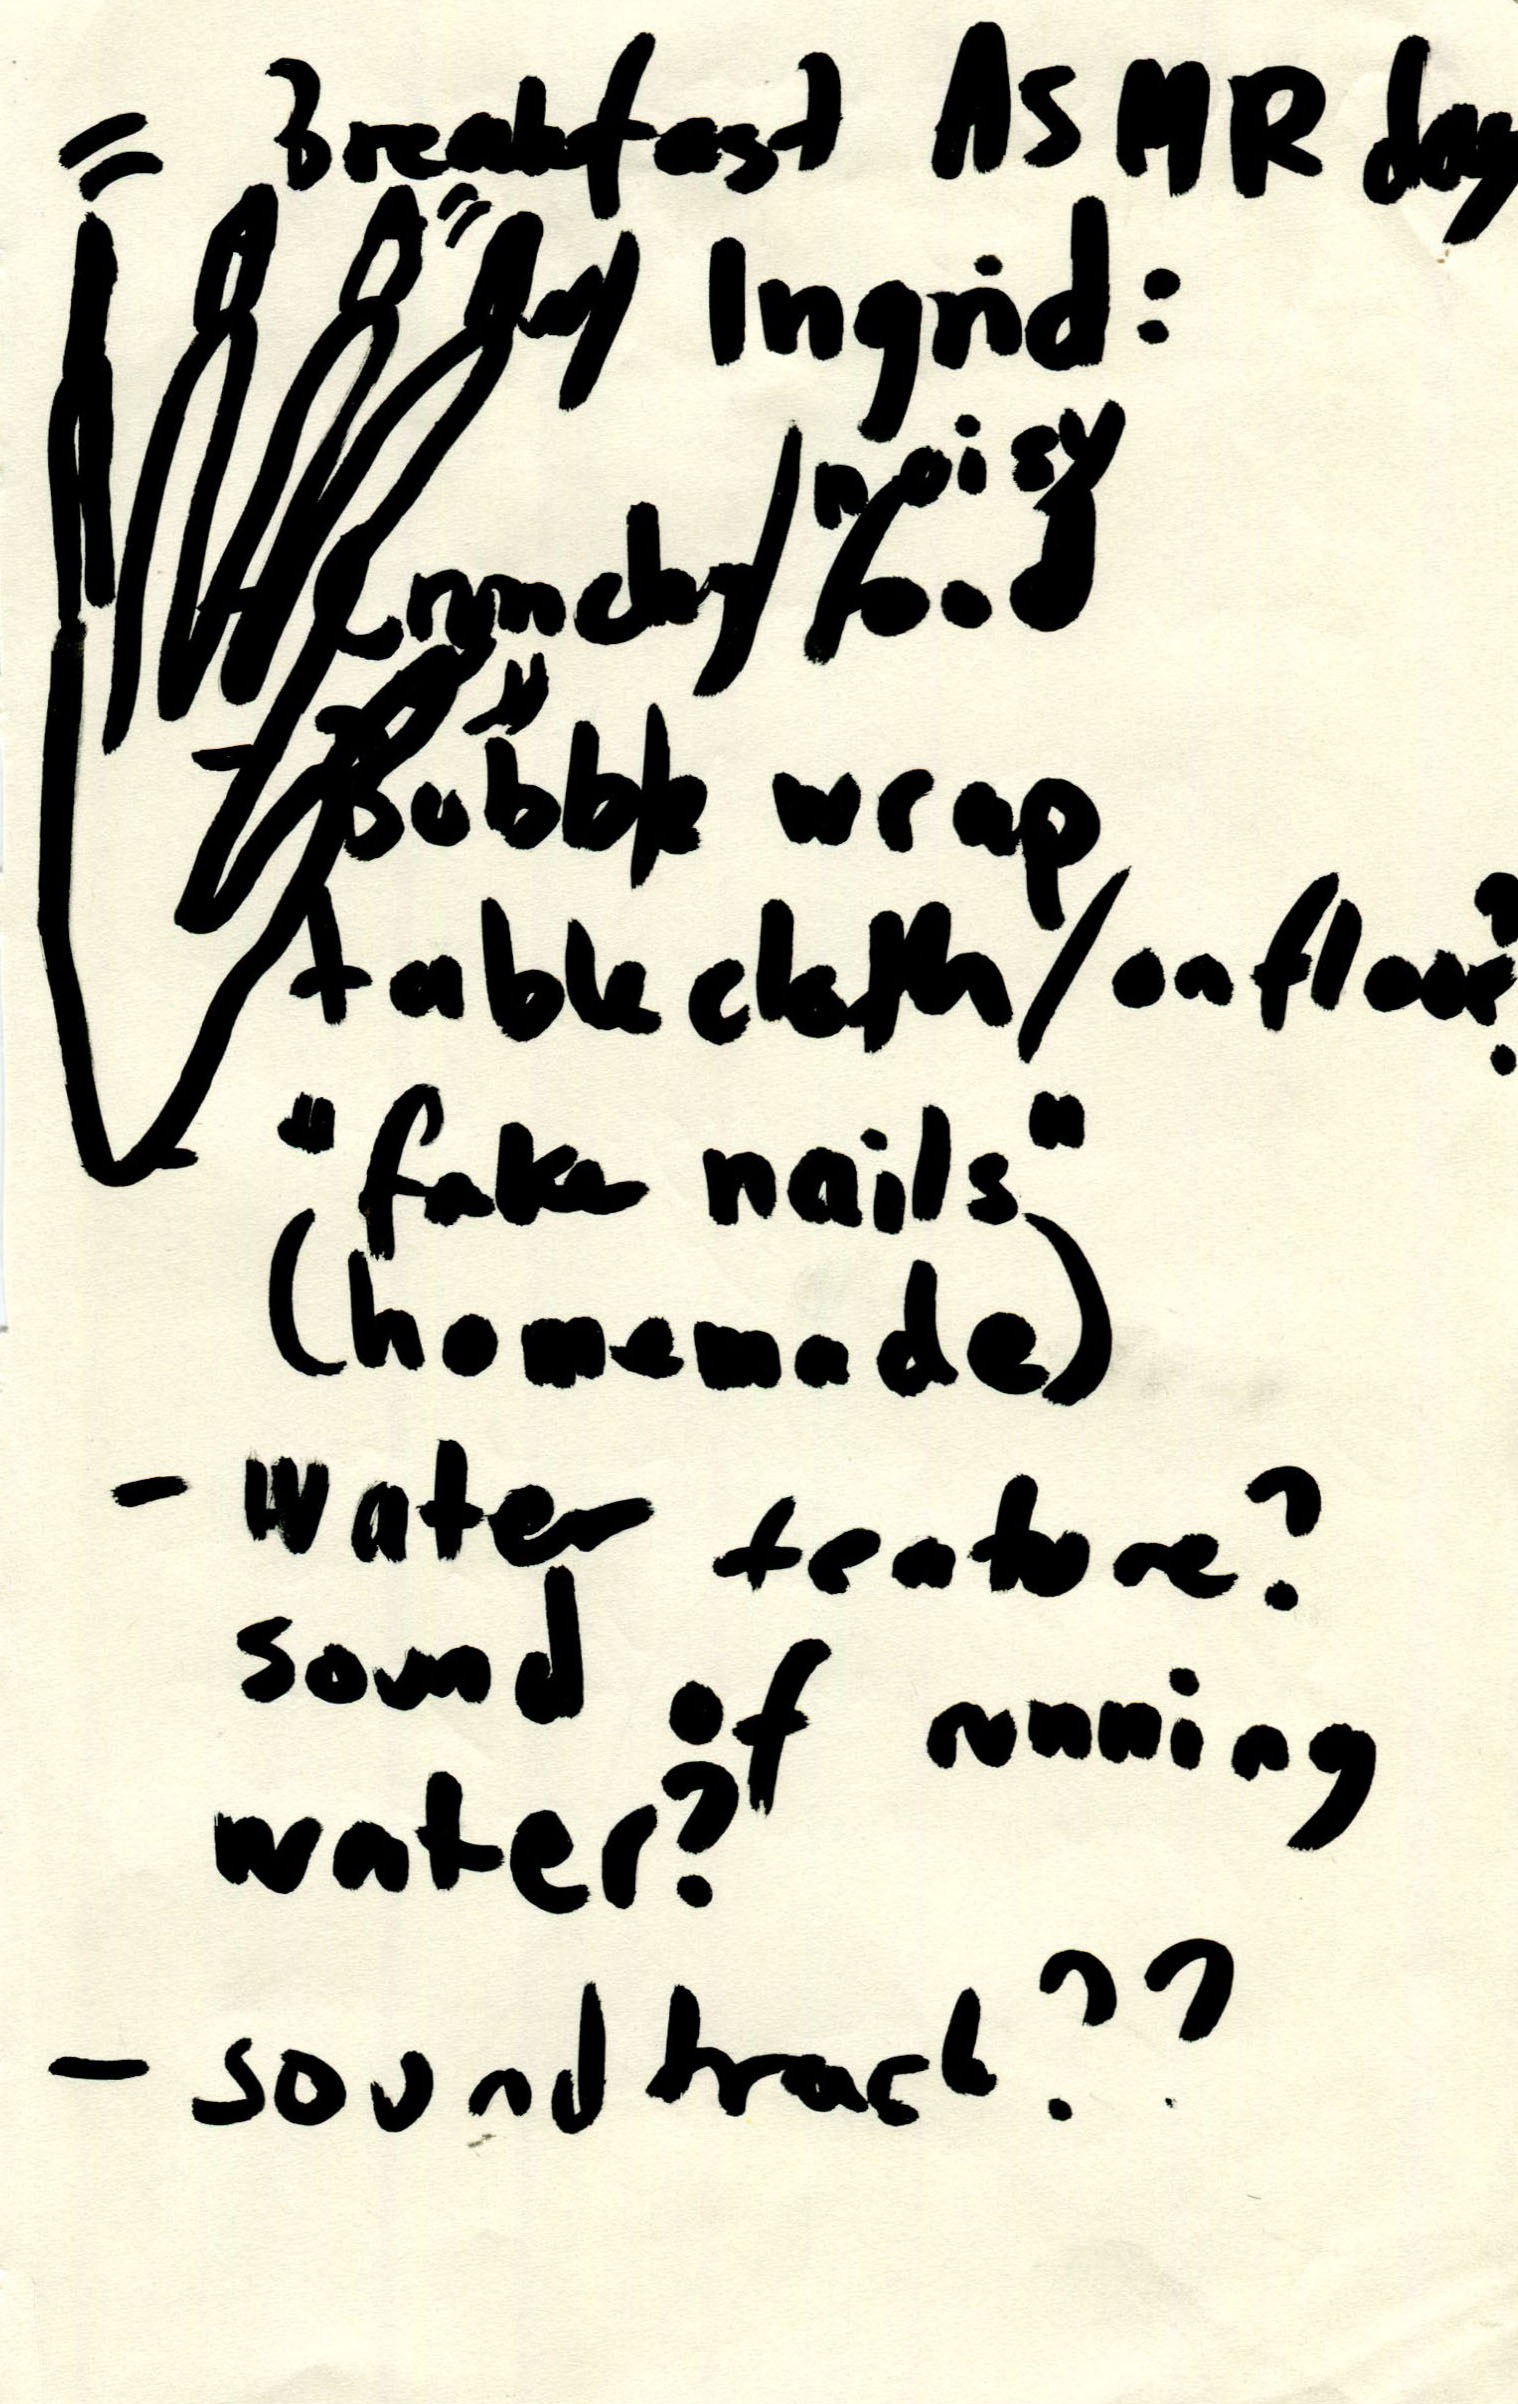 Breakfast ASMR day
by Ingrid:
noisy
crunchy / food
Bubble wrap
table cloth / on floor?
"fake nails"
(homemade)
- water feature?
sound of running
water?
- soundtrack??